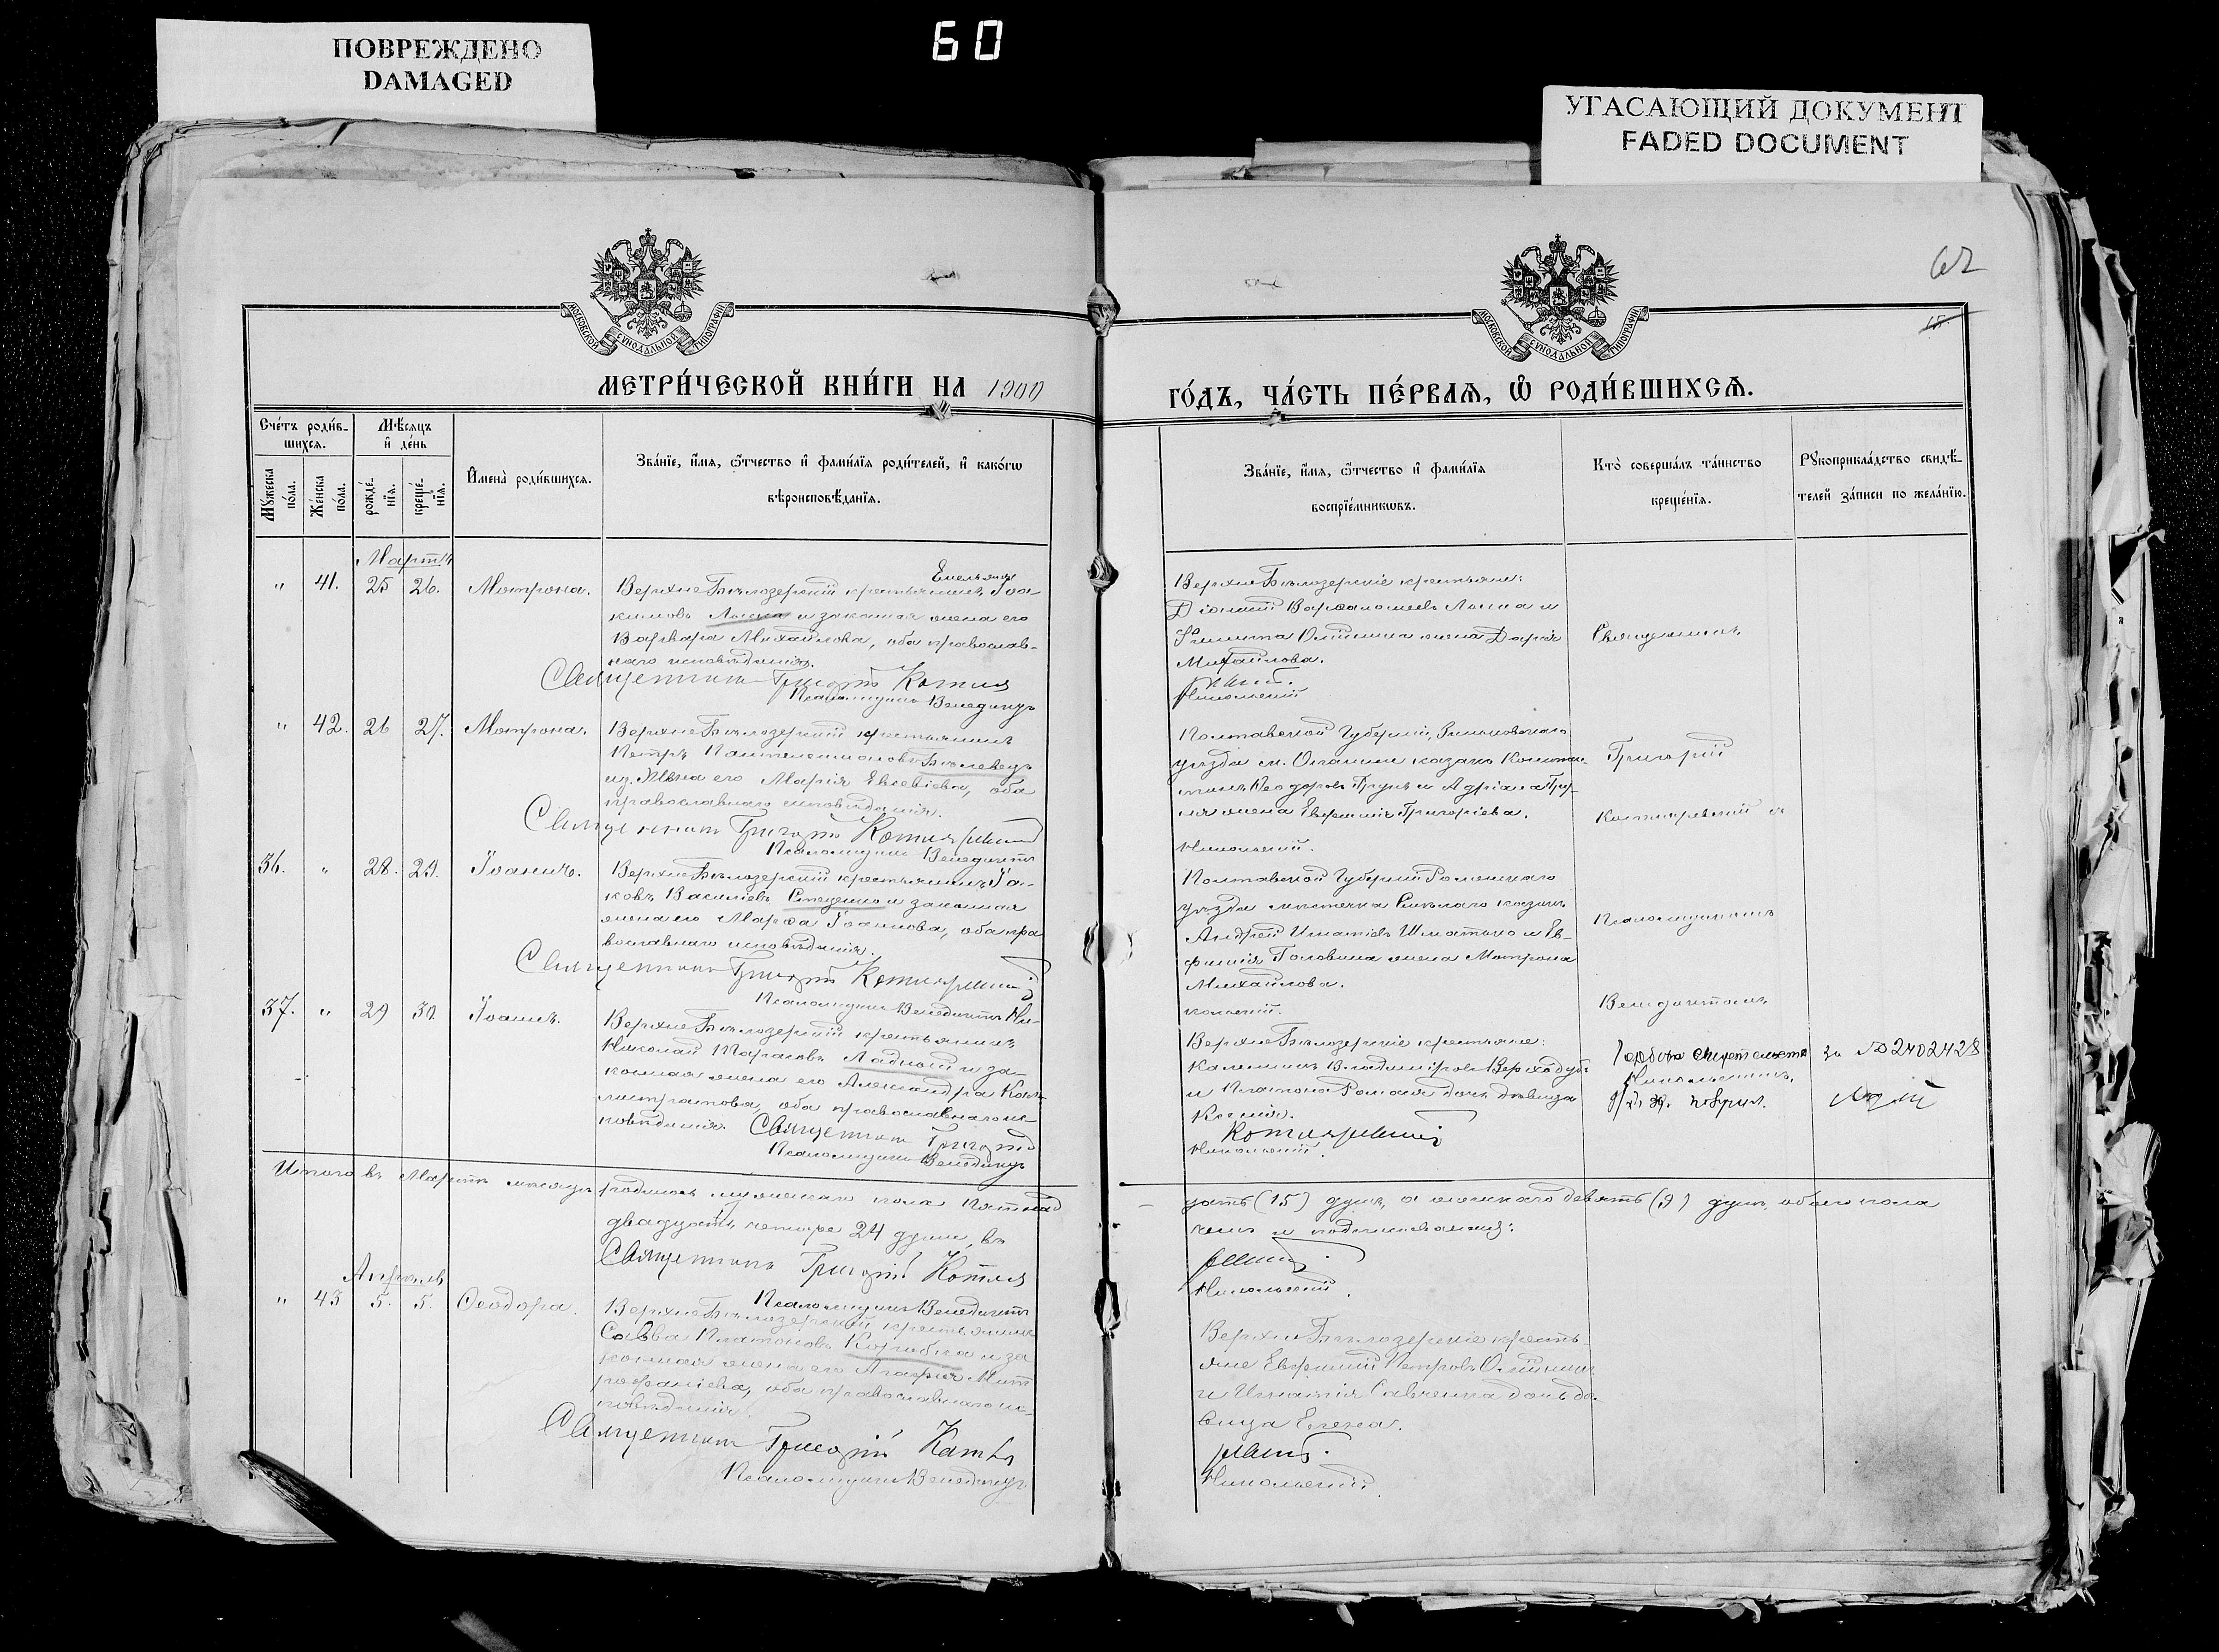 ПОВРЕЖДЕНО
DAMAGED
60
УГАСАЮЩИЙ ДОКУМЕНТ
FADED DOCUMENT
62
МОСКОВСКОЙ СѴНОДАЛЬНОЙ ТИПОГРАФІИ
МОСКОВСКОЙ СѴНОДАЛЬНОЙ ТИПОГРАФІИ
МЕТРИ́ЧЕСКОЙ КНИ́ГИ НА 1900
ГО́ДЪ, ЧА́СТЬ ПЕ́РВАѦ, Ѽ РОДИ́ВШИХСѦ.
Сче́тъ роди́в-
шихсѧ.
Мѣ́сѧцъ
и҆ де́нь
Мꙋ́жеска
по́ла.
Же́нска
по́ла.
рожде́-
нїѧ.
креще́-
нїѧ.
И҆мена̀ роди́вшихсѧ.
Зва́нїе, и҆́мѧ, ѻ҆́тчество и҆ фами́лїѧ роди́телей, и҆ како́гѡ
вѣроисповѣ́данїѧ.
Зва́нїе, и҆́мѧ, ѻ҆́тчество и҆ фами́лїѧ
воспрїе́мникѡвъ.
Кто̀ соверша́лъ та́инство
креще́нїѧ.
Рꙋкоприкла́дство свидѣ́-
телей за́писи по жела́нїю.
Мартъ
" 41. 25 26. Мотрона.
Емельянъ
Верхне Бѣлозерскій крестьянинъ Іоа-
кимовъ и законная жена его
Варвара Михайлова, оба православ-
наго исповѣданія.
Священникъ Григорій Котля
Псаломщикъ Венедиктъ
Верхне Бѣлозерскіе крестьяне:
Варѳоломеевъ и
жена Дарія
Михайлова.
ревскій.
Никольскій
Священникъ
" 42. 26 27. Мотрона.
Верхне Бѣлозерскій крестьянинъ
Петръ Пантелеимоновъ Бѣлевецъ
из. жена его Марія Евсевіева, оба
православнаго исповѣданія.
Священникъ Григорій Котляревскій
Псаломщикъ Венедиктъ
Полтавской Губерніи, Зеньковскаго
уѣзда казакъ
Ѳеодоровъ и Адріана
жена Евфимія Григоріева.
Никольскій.
Григорій
Котляревскій и
36. " 28. 29. Іоаннъ.
Верхне Бѣлозерскій крестьянинъ Іа-
ковъ Васильевъ Стеценко и законная
жена его Марѳа Іоаннова, оба пра
вославнаго исповѣданія.
Священникъ Григорій Котляревскій
Псаломщикъ Венедиктъ Ни-
Полтавской Губерніи Роменскаго
уѣзда мѣстечка Смѣлаго казакъ
Андрей Игнатіевъ Шматько и Ев-
фимія Головина жена Мотрона
Михайлова.
кольскій.
Псаломщикомъ
Венедиктомъ
37. " 29 30. Іоаннъ.
Верхне Бѣлозерскій крестьянинъ
Николай Тарасовъ Ладной и за-
конная жена его Александра Кал-
листратова, оба православнаго ис-
повѣданія. Священникъ Григорій
Псаломщикъ Венедиктъ
Верхне Бѣлозерскіе крестьяне:
Владиміровъ
и Платона дочь дѣвица
Ксенія.
Котляревскій
Никольскій.
за № 2402428
Никольскимъ.
Итого въ Мартѣ мѣсяцѣ родилось мужескаго пола пятнад
цать (15) душъ, а женскаго девять (9) душъ, обоего пола
двадцать четыре 24 души, въ
чемъ и подписываемся:
Священникъ Григорій Котля
ревскій.
Псаломщикъ Венедиктъ
Никольскій.
Апрѣль
" 43 5. 5. Ѳеодора.
Верхне Бѣлозерскій крестьянинъ
Савва Платоновъ и за
конная жена его Агафія Мит
рофаніева, оба православнаго ис-
повѣданія.
Священникъ Григорій Котля
Псаломщикъ Венедиктъ
Верхне Бѣлозерскіе кресть-
яне Евфимій Петровъ Олійникъ
и Игнатія Савченка дочь дѣ-
вица Елена.
ревскій.
Никольскій.